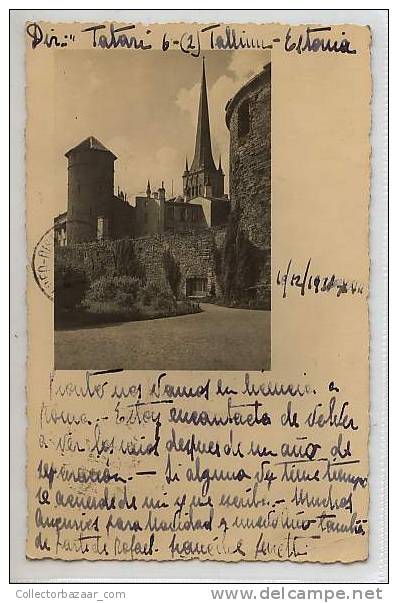 Dir:" Tatari 6-(2) Tallinn-Estonia
Pronto nos vamos en licencia a
Roma.- Estoy encantada de volver
a ver los míos despues de un año de
separación.- Si alguna vez tiene tiempo
se acuerde de mi y me escribe.- Muchos
augurios para Navidad y nuevo año también
de parte de Rafael.
CollectorBazaar.com
http://www.delcampe.net